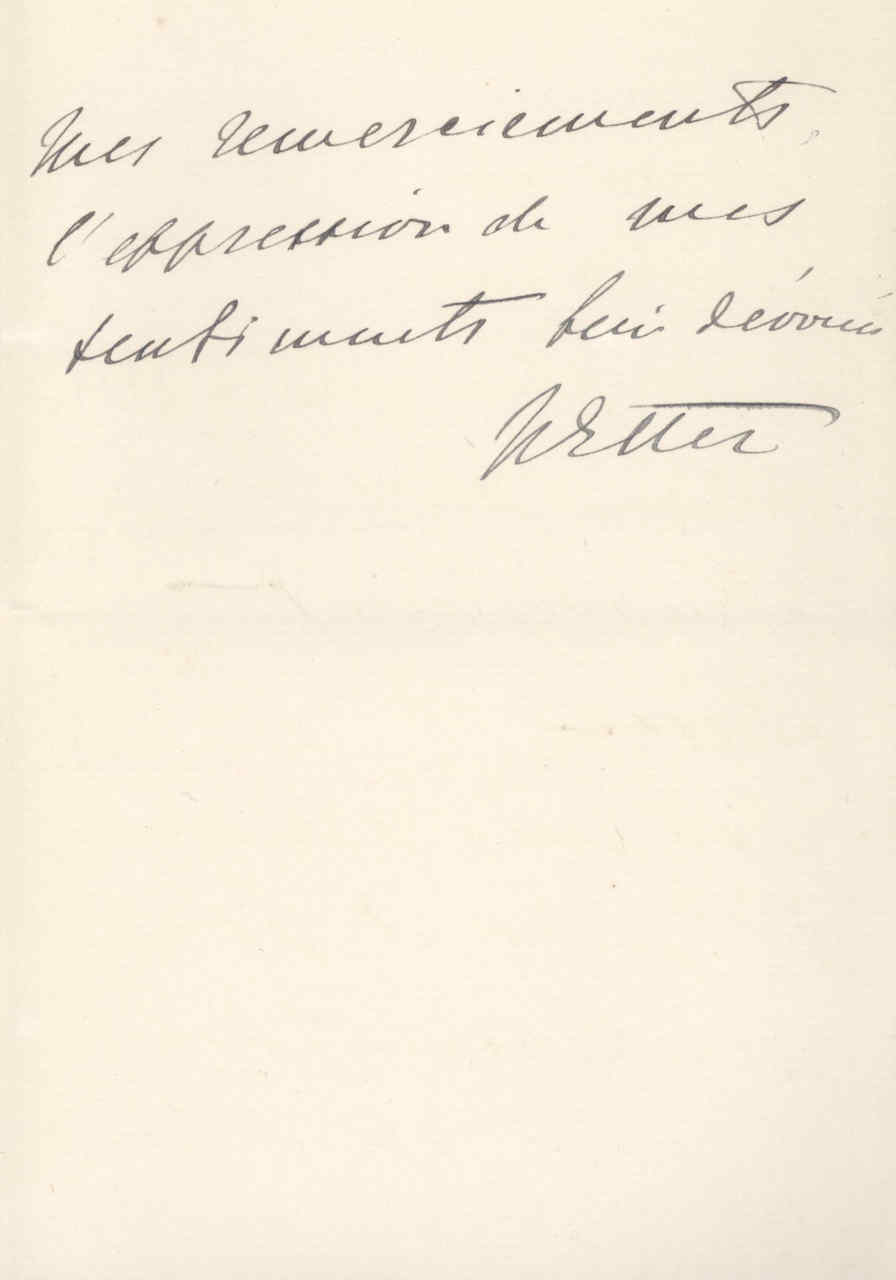 mes remerciements,
l'expression de mes
sentiments bien dévoués